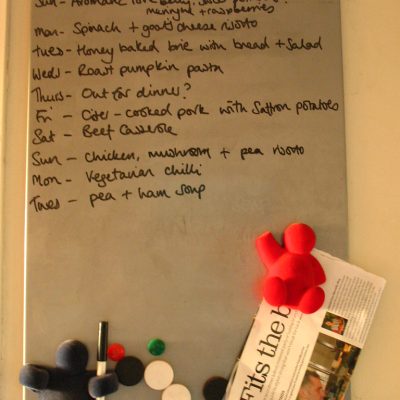 Sun - Aromatic pork belly,
meringue + raspberries
Mon - Spinach + goats cheese risotto
Tues - Honey baked brie with bread + Salad
Weds - Roast pumpkin pasta
Thurs - Out for dinner?
Fri - Cider - cooked pork with Saffron potatoes
Sat - Beef Casserole
Sun - Chicken, mushroom + pea risotto
Mon - Vegetarian chilli
Tues - pea + ham soup
Fits the b